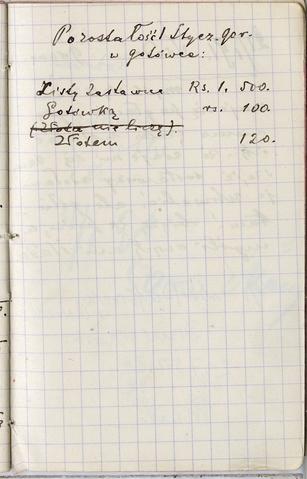 Pozostałość 1 Stycz. gor.
w gotówce:
Listy Zastawne Rs. 1,500.
Gotówką rs. 100.
(Złota nie liczę).
Złotem 120.